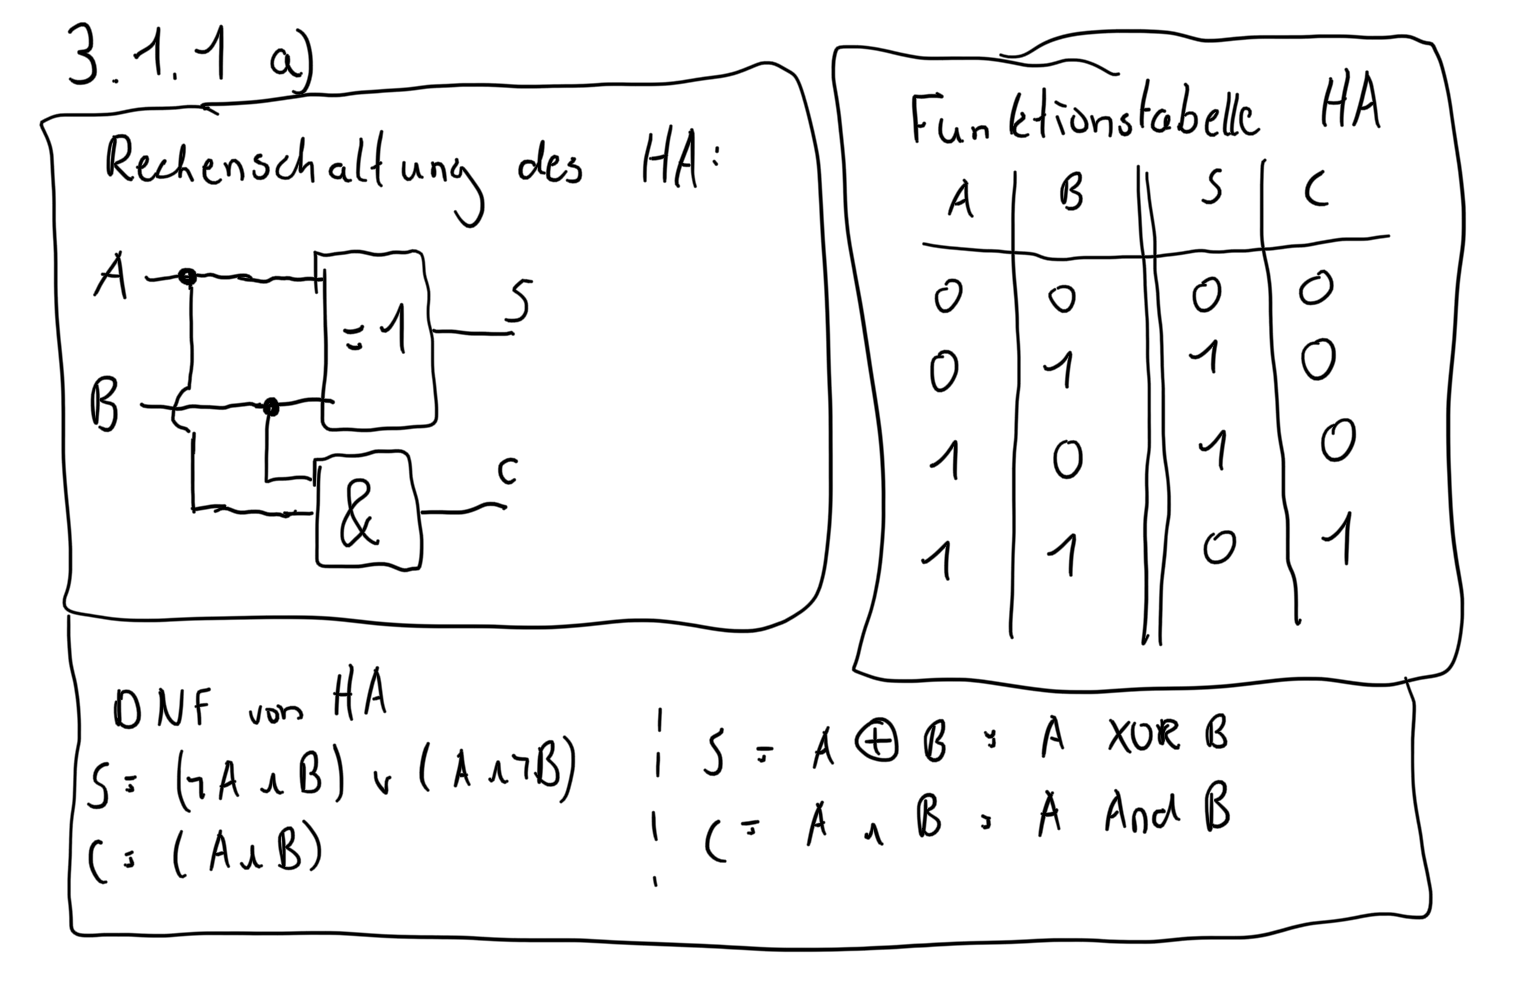 3.1.1 a)
Rechenschaltung des HA:
A
=1
S
B
&
C
Funktionstabelle HA
A B S C
0 0 0 0
0 1 1 0
1 0 1 0
1 1 0 1
DNF von HA
S = (¬A ∧ B) ∨ (A ∧ ¬B)
C = (A ∧ B)
S = A ⊕ B = A XOR B
C = A ∧ B = A And B